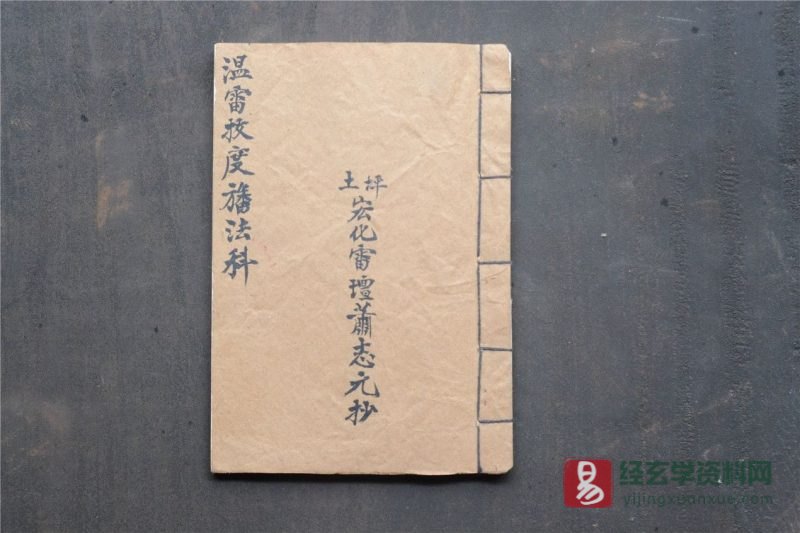 温雷拔度旛法科
土坪
宏化雷壇蕭志元抄
易
经玄学资料网
yijingxuanxue.com